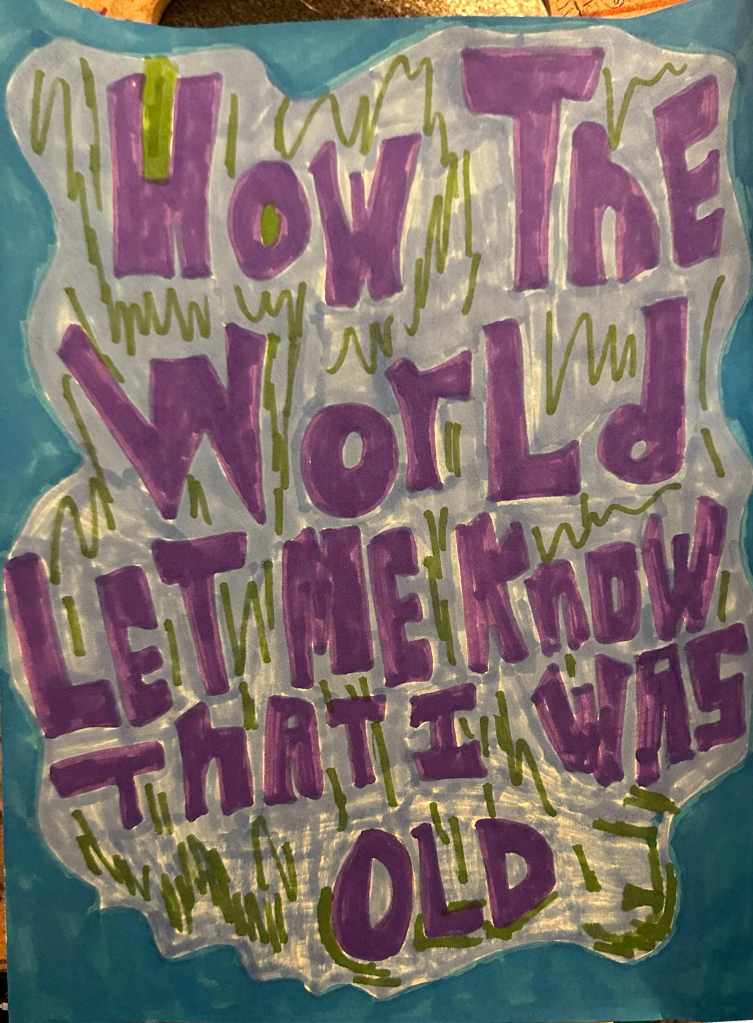 HOW ThE
WorLd
LET ME KnOW
ThAT I WAS
OLD